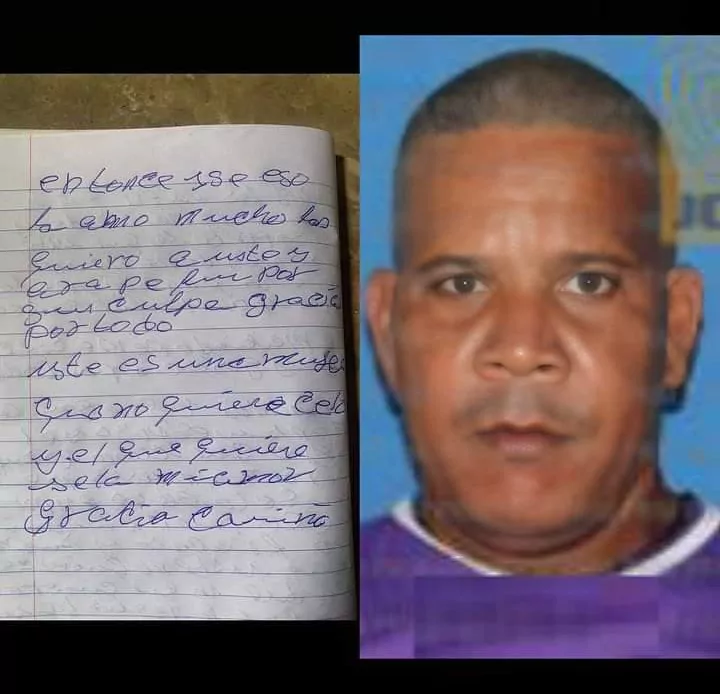 entonce use eso
la amo mucho los
quiero a uste y
ara pe
quu culpe gracia
por todo
uste es una muje
qua no quiere Cel
y el que quiere
sela mi amor
gracia cariño
JC